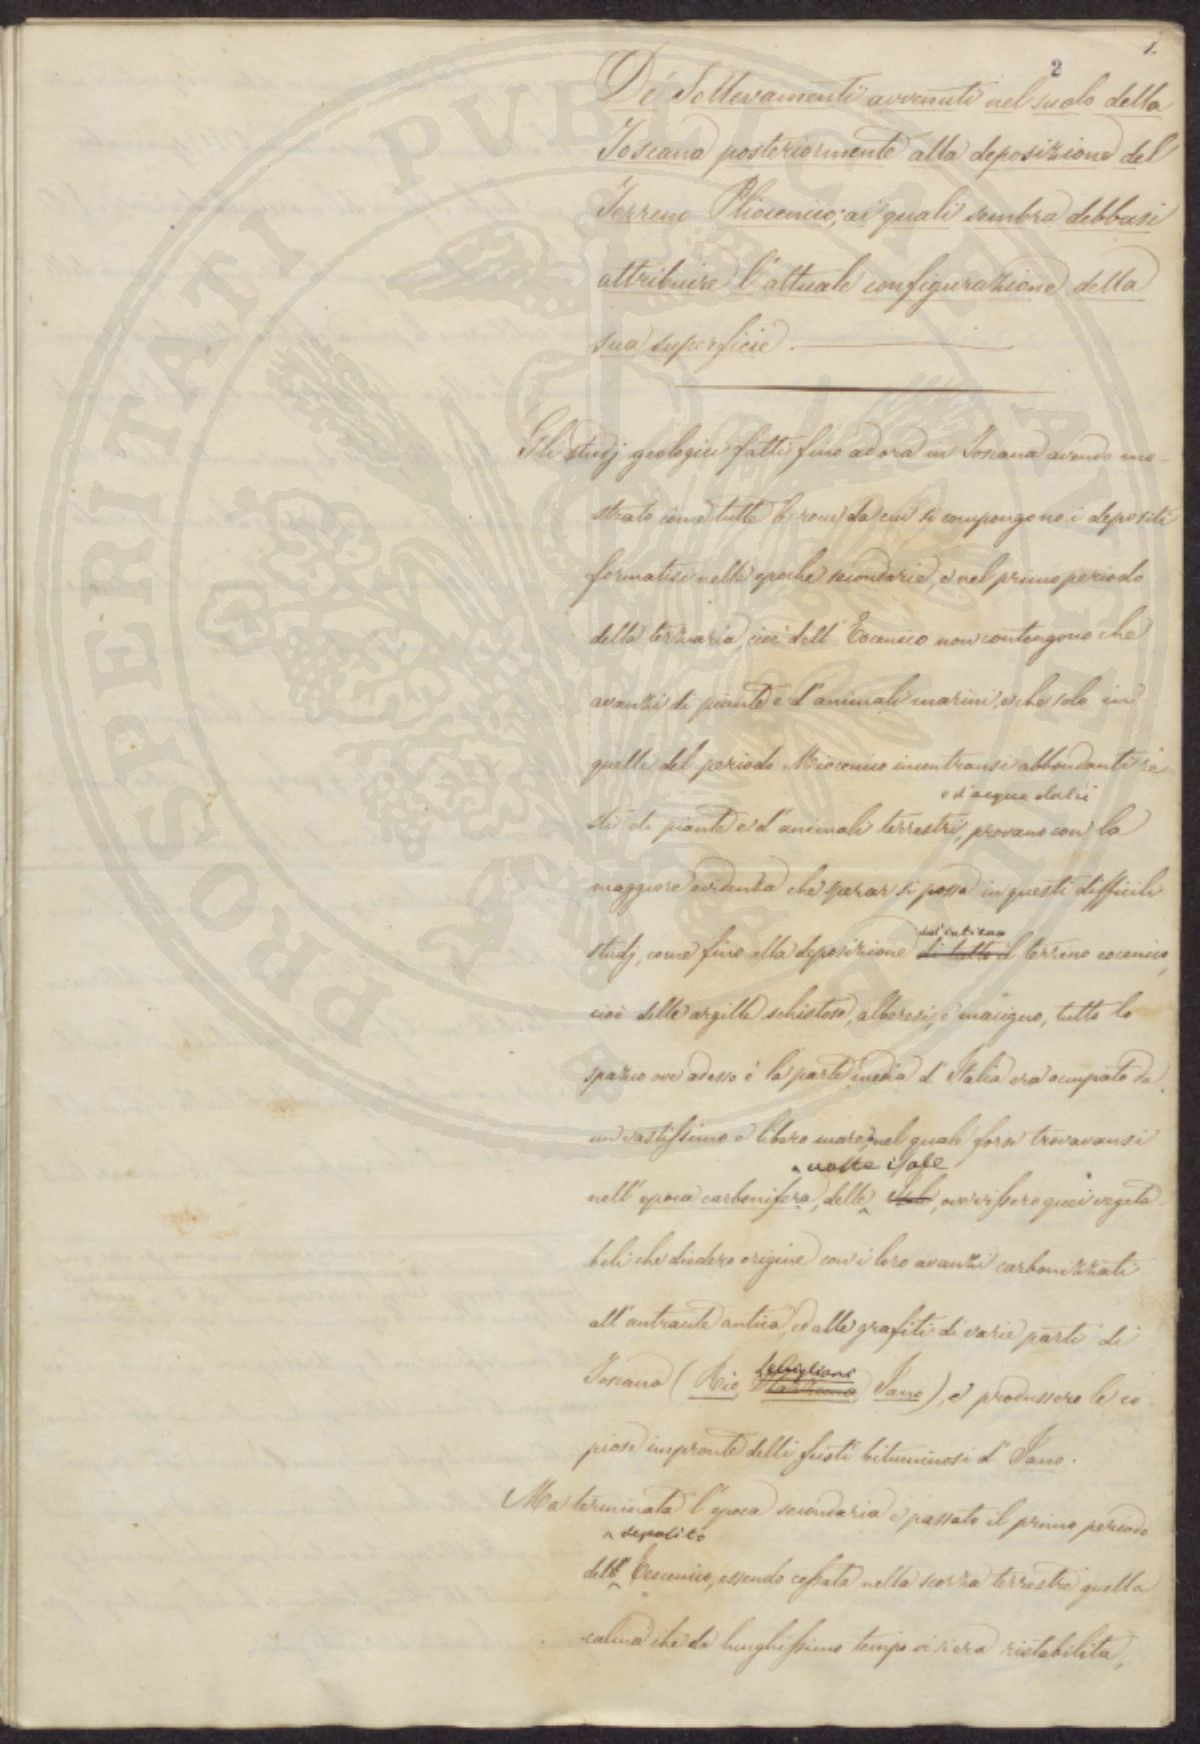 1.
2
De' Sollevamenti avvenuti nel suolo della
Toscana posteriormente alla deposizione del
Terreno Pliocenico; ai quali sembra debbasi
attribuire l'attuale configurazione della
sua superficie.
Gli studj geologici fatti fino ad ora in Toscana avendo mo-
strato come tutte le rocce da cui si compongono i depositi
formatisi nelle epoche secondarie, e nel primo periodo
della terziaria, cioè dell'Eocenico non contengono che
avanzi di piante e d'animali marini, e che solo in
quelle del periodo Miocenico incontransi abbondanti re-
e d'acque dulci
sti di piante e d'animali terrestri, provano con la
maggiore evidenza che sperar si possa in questi difficili
dell'intiero
studj, come fino alla deposizione di tutto il terreno eocenico,
cioè delle argille schistose, alberesi, e macigno, tutto lo
spazio ove adesso è la parte media d'Italia era occupato da
un vastissimo e libero mare, nel quale forse trovavansi
isole
nell'epoca carbonifera, delle, ove vissero quei vegeta-
bili che diedero origine con i loro avanzi carbonizzati
all'antracite antica, ed alle grafiti di varie parti di
Toscana (Rio, Jano), e produssero le co-
piose impronte delli scisti bituminosi d'Jano.
Ma terminata l'epoca secondaria e passato il primo periodo
deposito
dell' Eocenico, essendo cessata nella scorza terrestre quella
calma che da lunghissimo tempo vi si era ristabilita,
PROSPERITATI PUBLICAE AUGENDAE